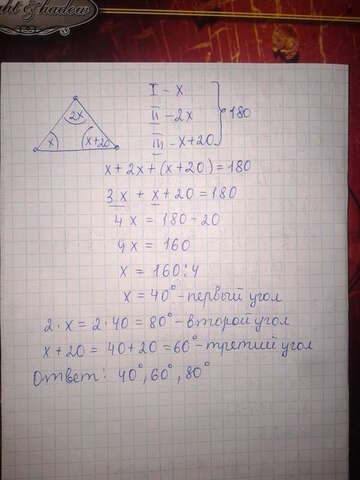 ht & shadow
I - x
II - 2x
III - x+20
180
2x
x
x+20
x+2x+(x+20)=180
3x + x+20=180
4x = 180-20
4x = 160
x = 160:4
x = 40° - первый угол
2·x = 2·40 = 80° - второй угол
x+20 = 40+20 = 60° - третий угол
Ответ: 40°, 60°, 80°